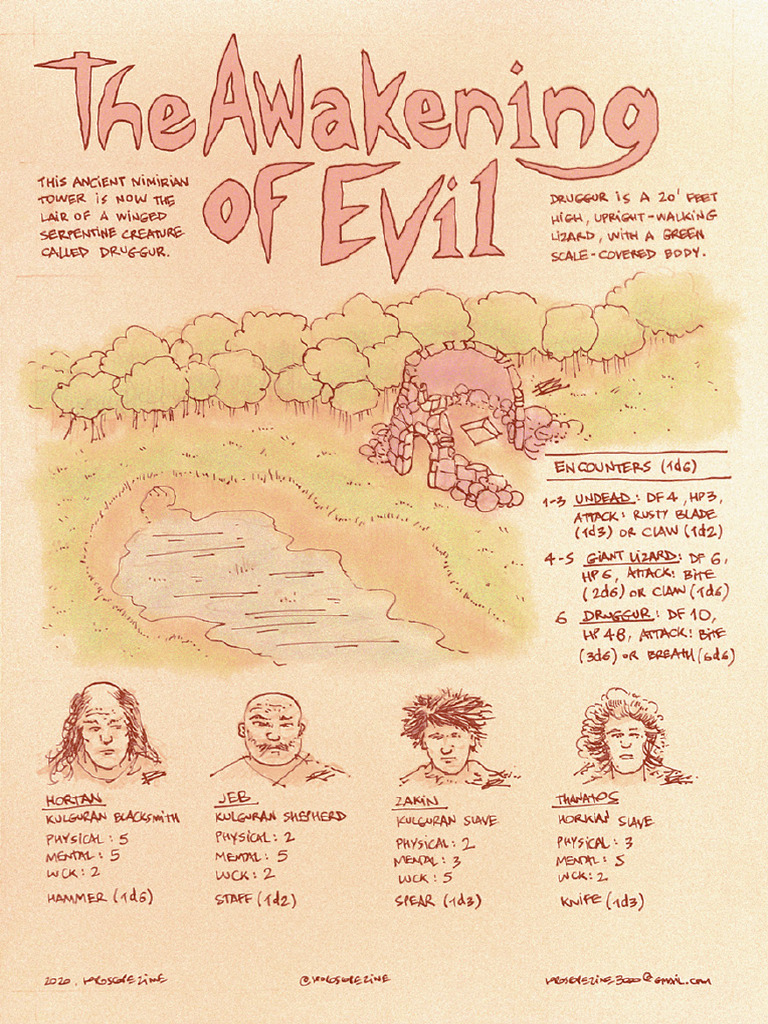 The Awakening
of Evil
THIS ANCIENT NIMIRIAN
TOWER IS NOW THE
LAIR OF A WINGED
SERPENTINE CREATURE
CALLED DRUGGUR.
DRUGGUR IS A 20' FEET
HIGH, UPRIGHT-WALKING
LIZARD, WITH A GREEN
SCALE-COVERED BODY.
ENCOUNTERS (1d6)
1-3 UNDEAD: DF 4, HP 3,
ATTACK: RUSTY BLADE
(1d3) OR CLAW (1d2)
4-5 GIANT LIZARD: DF 6,
HP 6, ATTACK: BITE
(2d6) OR CLAW (1d6)
6 DRUGGUR: DF 10,
HP 48, ATTACK: BITE
(3d6) OR BREATH (6d6)
HORTAN
KULGURAN BLACKSMITH
PHYSICAL: 5
MENTAL: 5
LUCK: 2
HAMMER (1d6)
JEB
KULGURAN SHEPHERD
PHYSICAL: 2
MENTAL: 5
LUCK: 2
STAFF (1d2)
ZAKIN
KULGURAN SLAVE
PHYSICAL: 2
MENTAL: 3
LUCK: 5
SPEAR (1d3)
THANATOS
SLAVE
PHYSICAL: 3
MENTAL: 5
LUCK: 2
KNIFE (1d3)
2020.